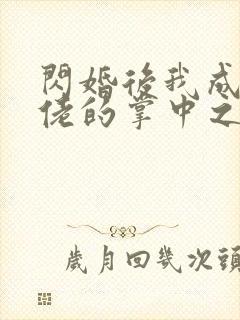 閃婚後我成
佬的掌中之
歲月回幾次頭